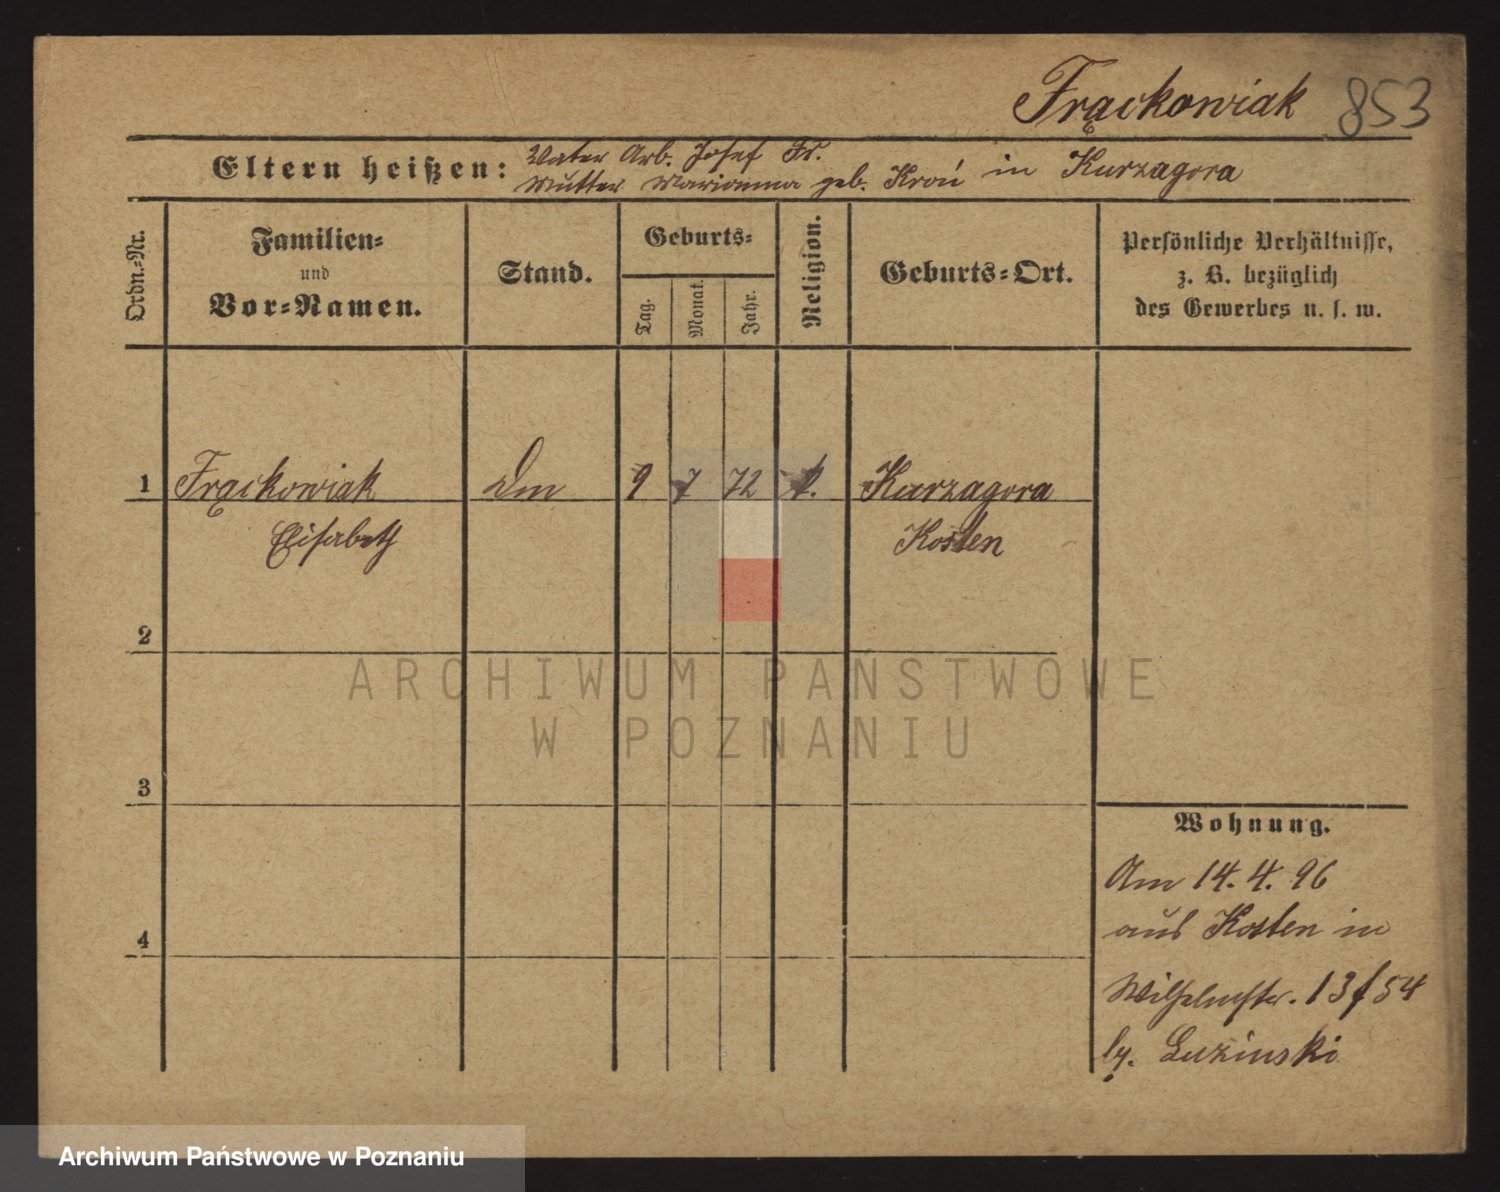 Frąckowiak 853
Eltern heißen: Vater Arb. Josef Fr.
Mutter Marianna geb. Kroń in Kurzagora
Ordn.-Nr.
Familien-
und
Vor-Namen.
Stand.
Geburts-
Tag.
Monat.
Jahr.
Religion.
Geburts-Ort.
Persönliche Verhältnisse,
z. B. bezüglich
des Gewerbes u. s. w.
1 Frąckowiak 9 7 72 k. Kurzagora
Elisabeth Kosten
2
3
4
Wohnung.
Am 14.4.96
aus Kosten in
Wilhelmstr. 13/54
Luzinski
ARCHIWUM PAŃSTWOWE
W POZNANIU
Archiwum Państwowe w Poznaniu